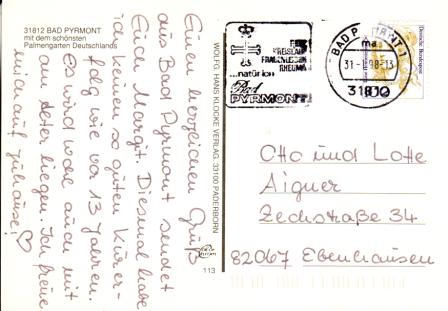 31812 BAD PYRMONT
mit dem schönsten
Palmengarten Deutschlands
Einen herzlichen Gruß
aus Bad Pyrmont sendet
Eure Margit. Diesmal habe
ich keinen so guten Kurer-
folg wie vor 13 Jahren.
Es wird wohl auch mit
am Alter liegen. Ich freue
mich auf zuhause! ♡
WOLFG. HANS KLOCKE VERLAG, 33100 PADERBORN
113
HERZ
KREISLAUF
FRAUENLEIDEN
RHEUMA
...natürlich
Bad
PYRMONT!
BAD PYRMONT 1
ma
-13
318
Deutsche Bundespost
Otto und Lotte
Aigner
Zechstraße 34
82067 Ebenhausen